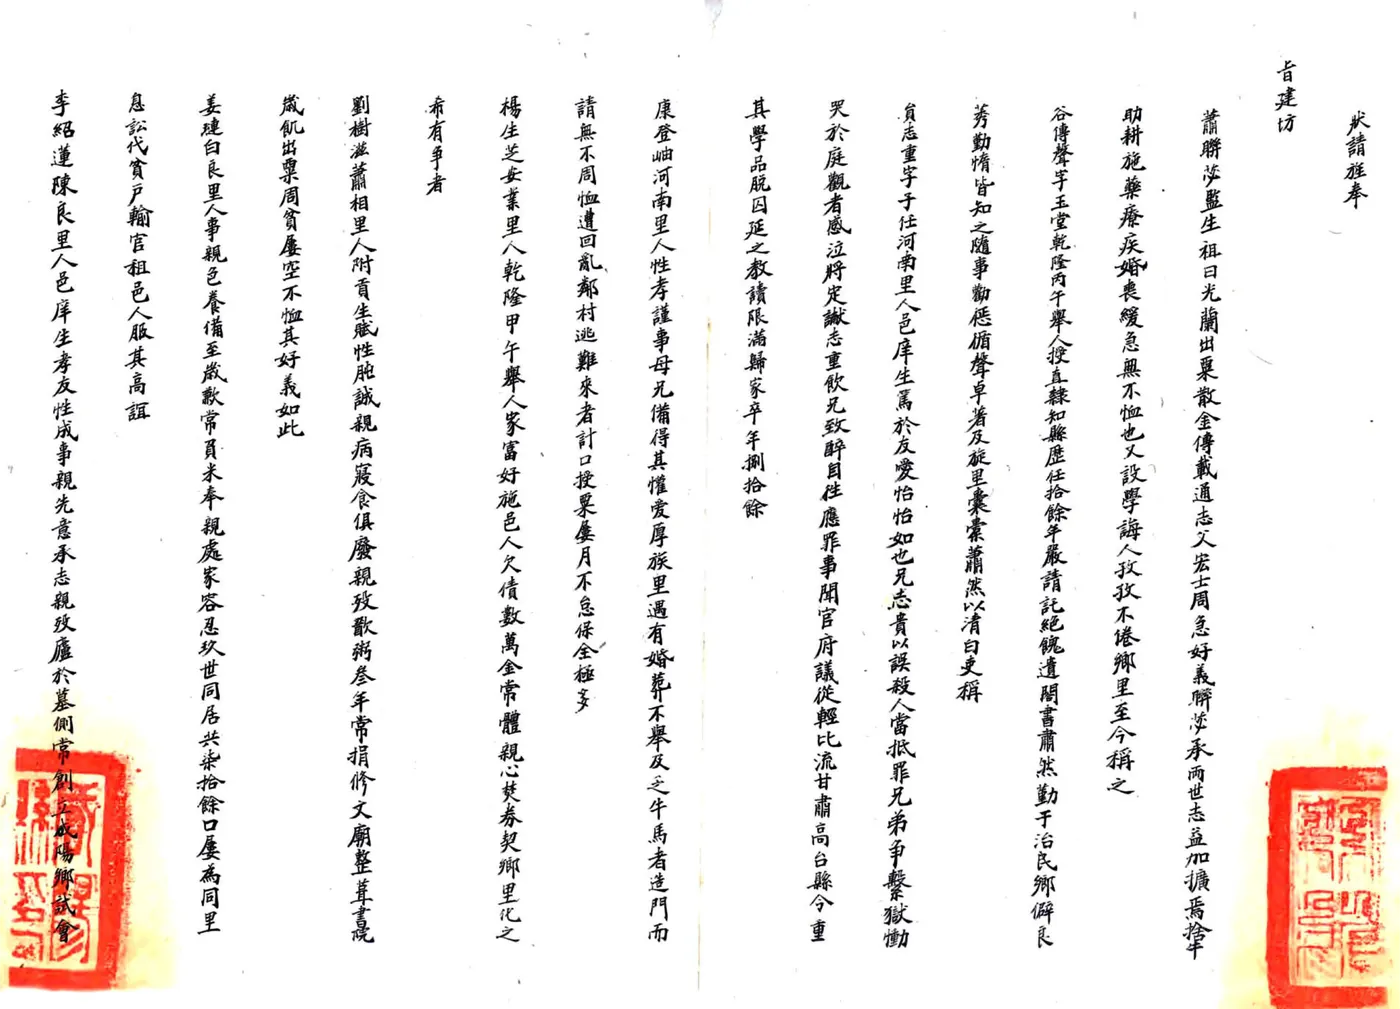 狀請旌奉
旨建坊
蕭聯莎監生祖曰光蘭出粟散金傳載通志父宏士周急好義聯莎承兩世志益加擴焉捨牛
助耕施藥療疾婚喪緩急無不恤也又設學誨人孜孜不倦鄉里至今稱之
谷傳聲字玉堂乾隆丙午舉人授直隸知縣歷任拾餘年嚴請託絕餽遺閣書肅然勤于治民鄉僻良
莠勤惰皆知之隨事勸懲循聲卓著及旋里囊橐蕭然以清白吏稱
貟志重字子任河南里人邑庠生篤於友愛怡怡如也兄志貴以誤殺人當抵罪兄弟爭繫獄慟
哭於庭觀者感泣將定讞志重飲兄致醉自往應罪事聞官府議從輕比流甘肅高台縣令重
其學品脱囚延之教讀限滿歸家卒年捌拾餘
康登岫河南里人性孝謹事母兄備得其懽愛厚族里遇有婚葬不舉及乏牛馬者造門而
請無不周恤遭回亂鄰村逃難來者計口授粟屢月不怠保全極多
楊生芝安業里人乾隆甲午舉人家富好施邑人欠債數萬金常體親心焚券契鄉里化之
希有爭者
劉樹滋蕭相里人附貢生賦性肫誠親病寢食俱廢親歿歠粥叁年常捐修文廟整葺書院
歲飢出粟周貧屢空不恤其好義如此
姜璉白良里人事親色養備至歲歉常負米奉親處家容忍玖世同居共柒拾餘口屢為同里
息訟代貧戶輸官租邑人服其高誼
李紹蓮陳良里人邑庠生孝友性成事親先意承志親歿廬於墓側常創立咸陽鄉試會